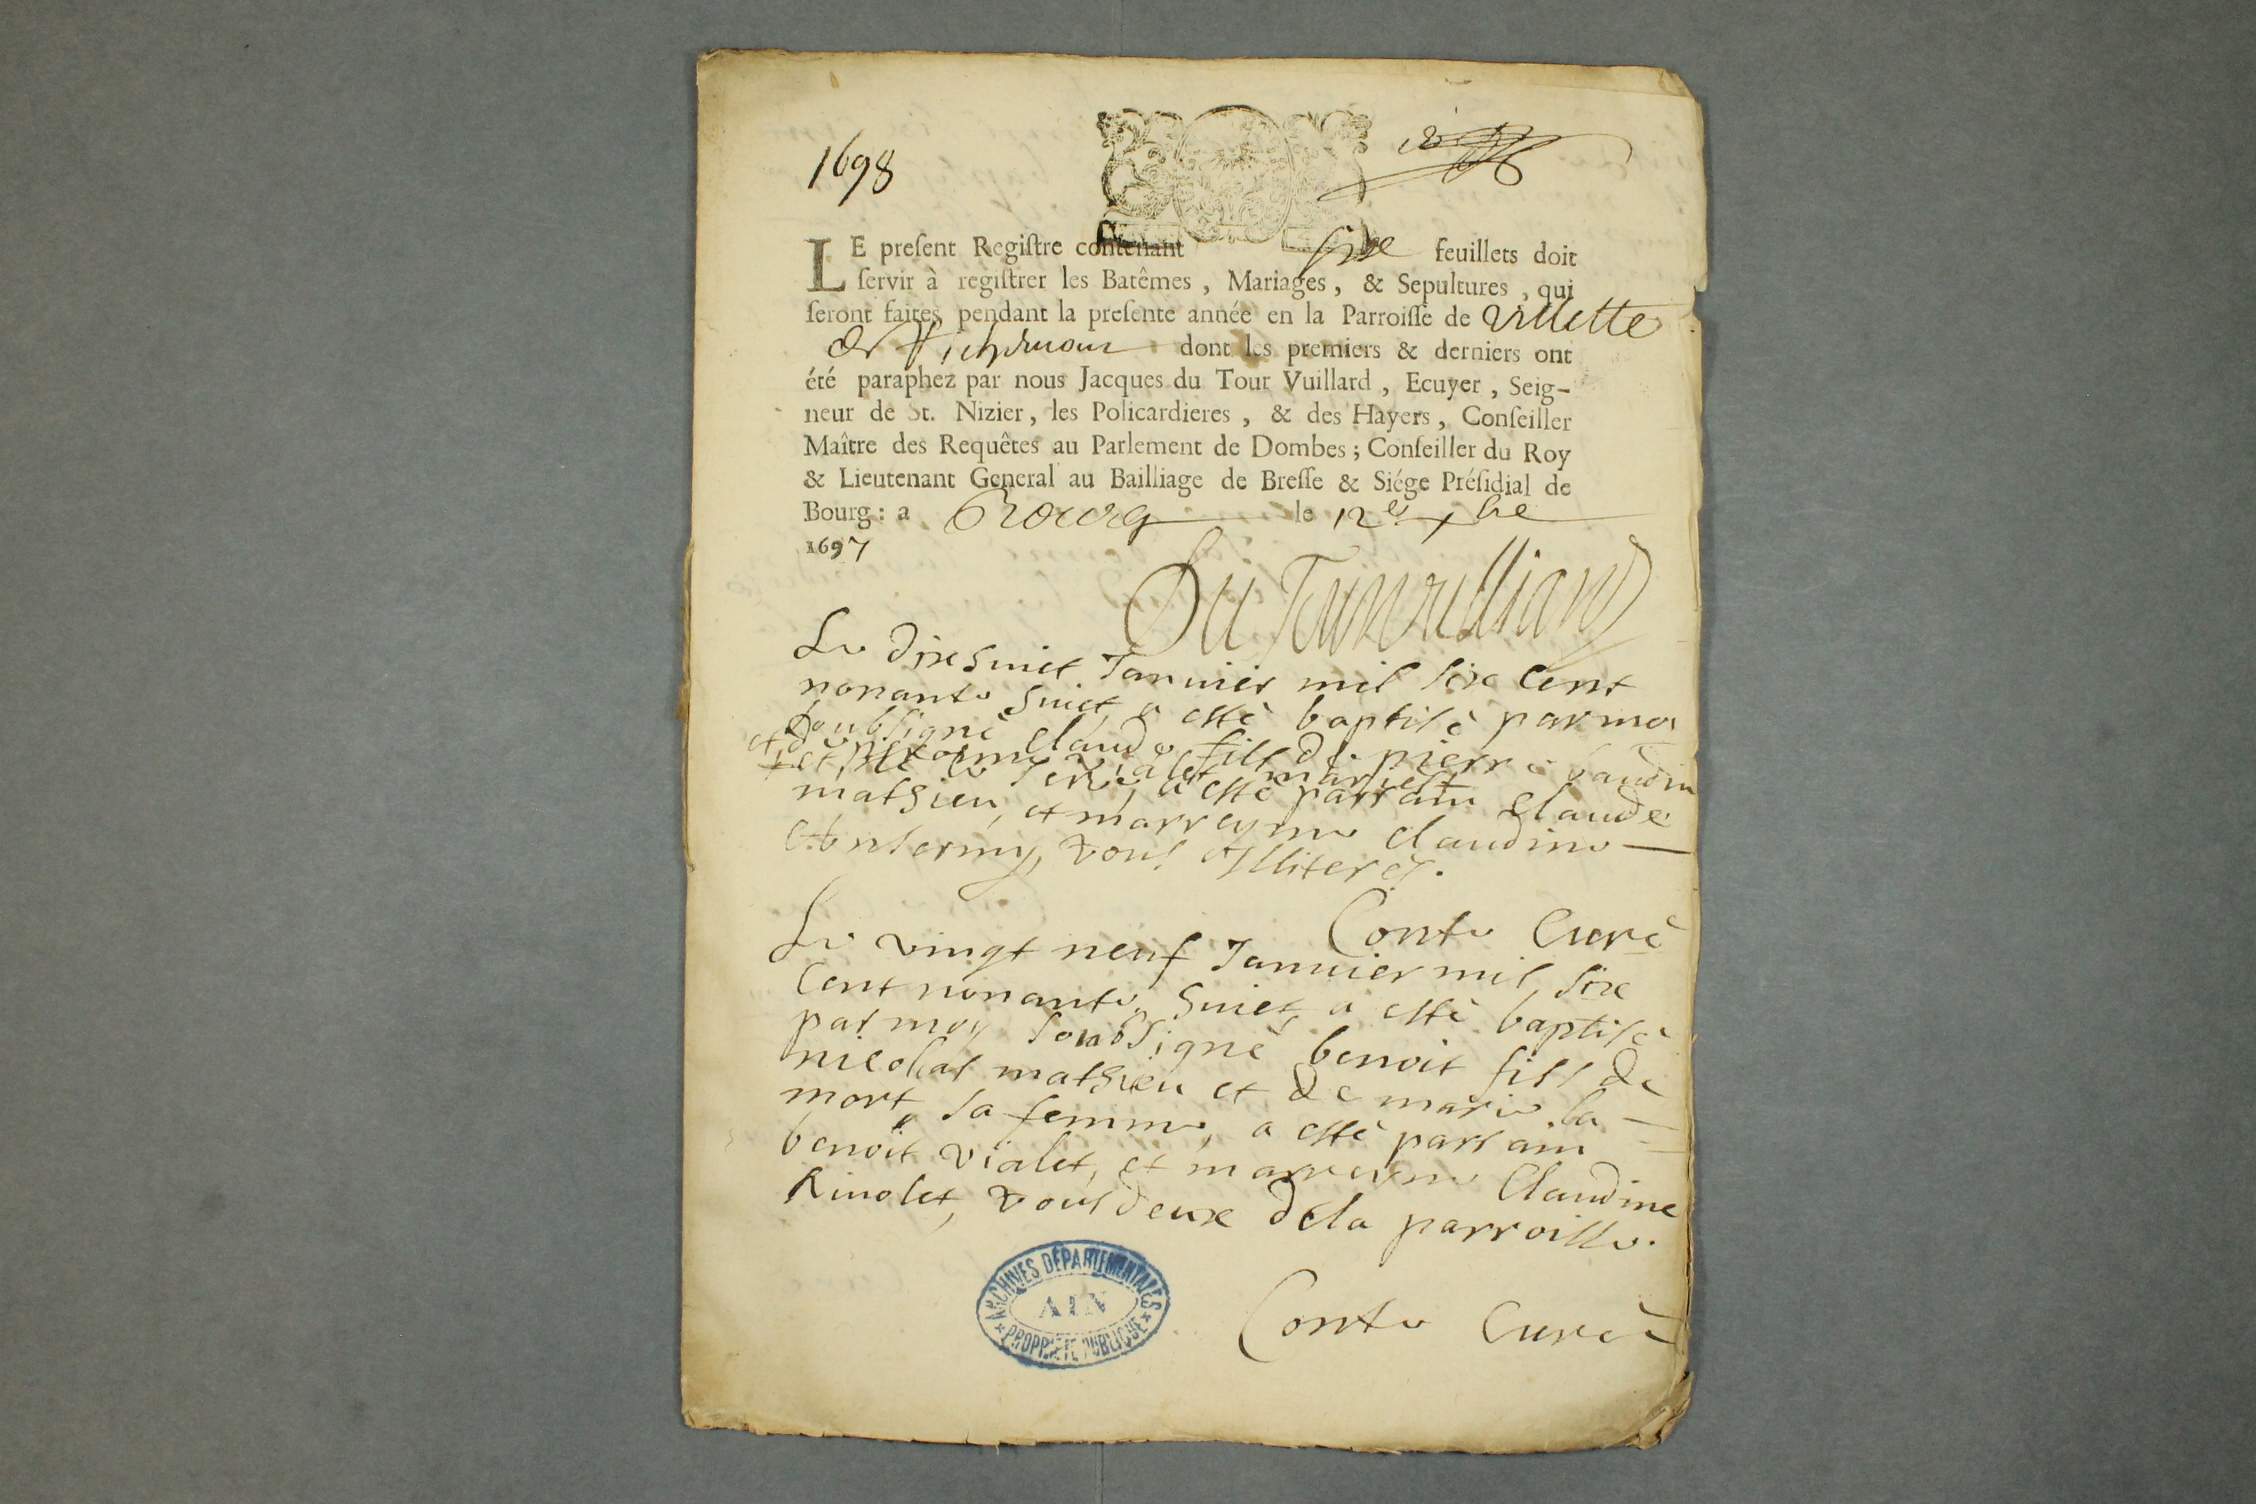 1698
LE preſent Regiſtre contenant six feuillets doit
ſervir à regiſtrer les Batêmes, Mariages, & Sepultures, qui
ſeront faites pendant la preſente année en la Parroiſſe de Villette
de Richemont dont les premiers & derniers ont
été paraphez par nous Jacques du Tour Vuillard, Ecuyer, Seig-
neur de St. Nizier, les Policardieres, & des Hayers, Conſeiller
Maître des Requêtes au Parlement de Dombes; Conſeiller du Roy
& Lieutenant General au Bailliage de Breſſe & Siége Préſidial de
Bourg: a Bourg le 12e xbre
1697
Du Tour Vuilliard
Le dixhuict Januier mil six cent
nonante huict, a esté baptisé par moy
soubsigné claude fils de pierre baudin
et de vialet mariés
a esté parrain claude
mathieu, et marreyne claudine
tous illiterés.
Conte Curé
Le vingt neuf Januier mil six
cent nonante huict, a esté baptisé
par moy soubsigné benoit fils de
nicolas mathieu et de marie la
mort, sa femme, a esté parrain
benoit vialet, et marreyne Claudine
Rivolet, tous deux dela parroisse.
Conte Curé
ARCHIVES DÉPARTEMENTALES
AIN
PROPRIÉTÉ PUBLIQUE